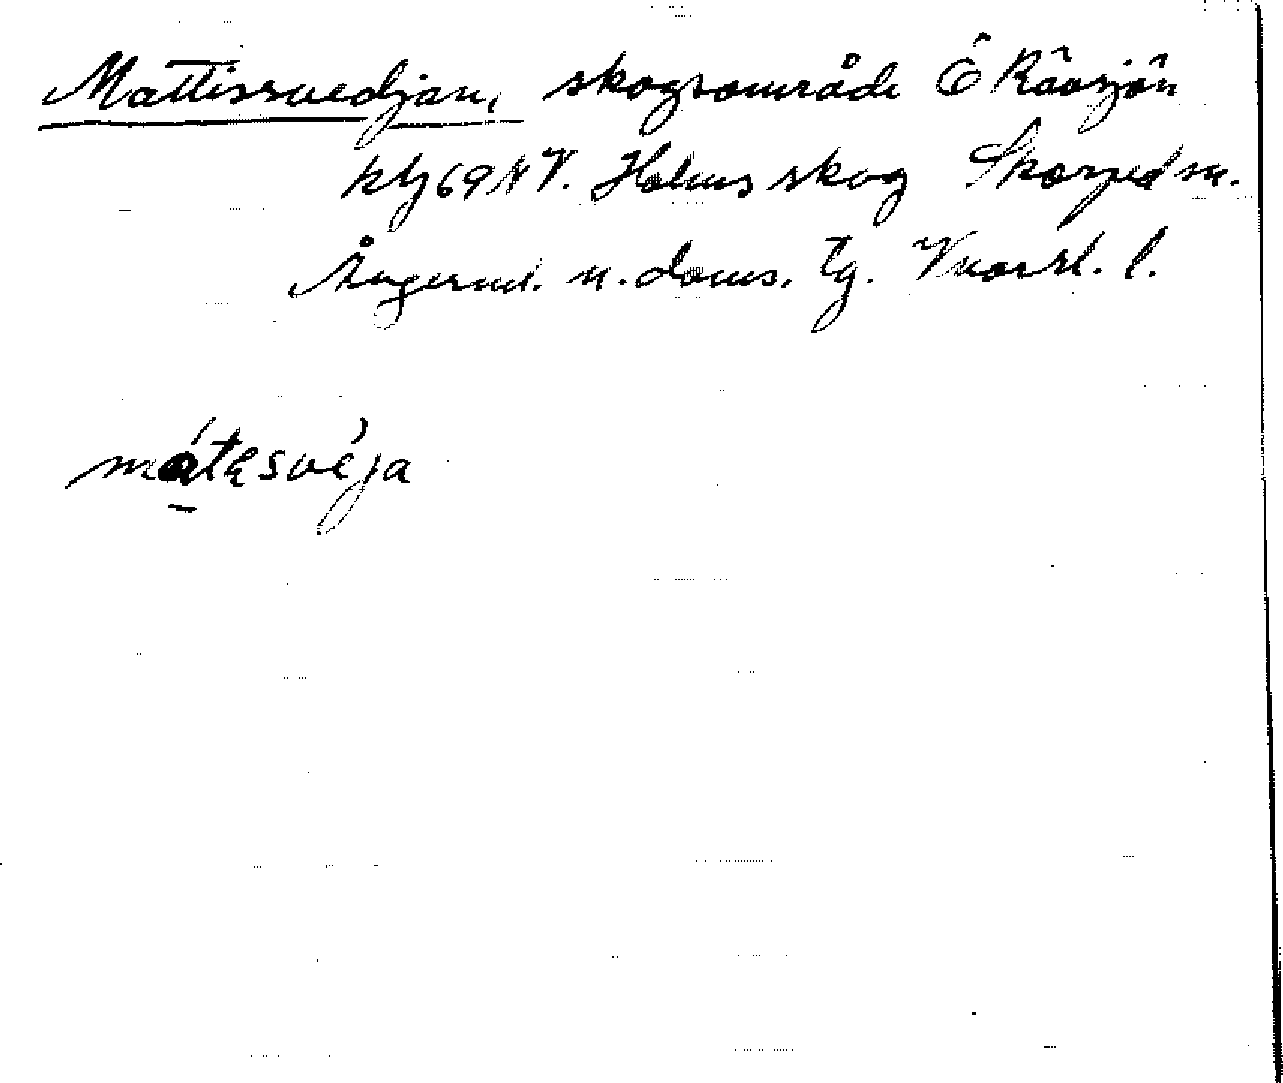 Mattissvedjan, skogsområde Ö Råssjön
kbl 69 NV. Holms skog Skorped sn.
Ångerml. n. doms. tg. Vnorrl. l.
mátɛsvéja